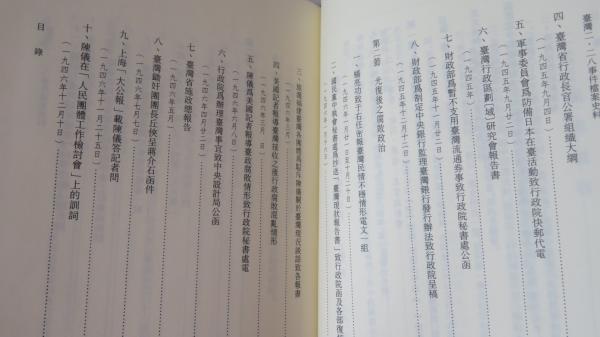 臺灣二・二八事件檔案史料
四、臺灣省行政長官公署組織大綱
（一九四五年九月四日）
五、軍事委員會爲防備日本在臺活動致行政院快郵代電
（一九四五年九月二日）
六、臺灣行政區劃（域）研究會報告書
（一九四五年）
七、財政部爲暫不支用臺灣流通券事致行政院秘書處公函
（一九四五年十月二日）
八、財政部爲制定中央銀行監理臺灣銀行發行辦法致行政院呈稿
（一九四五年
第二節 光復後之腐敗政治
一、楊亮功致于右任密報臺灣民情不穩情形電文一組
（一九四六年
二、國民黨中執會秘書處爲抄送「臺灣現狀報告書」致行政院函及各部復
三、旅滬福建臺灣各團體爲駁斥陳儀關於臺灣現況談話致各報書
（一九四六年三月）
四、英國記者報導臺灣接收之後行政腐敗混亂情形
（一九四六年三月）
五、陳儀爲美國記者報導臺政腐敗情形致行政院秘書處電
（一九四六年六月八日）
六、行政院爲辦理臺灣事宜致中央設計局公函
（一九四六年四月廿二日）
七、臺灣省施政總報告
（一九四六年五月）
八、臺灣鋤奸團團長丘俠呈蔣介石函件
（一九四六年
九、上海「大公報」載陳儀答記者問
（一九四六年十一月二十五日）
十、陳儀在「人民團體工作檢討會」上的訓詞
（一九四六年十二月十日）
目錄